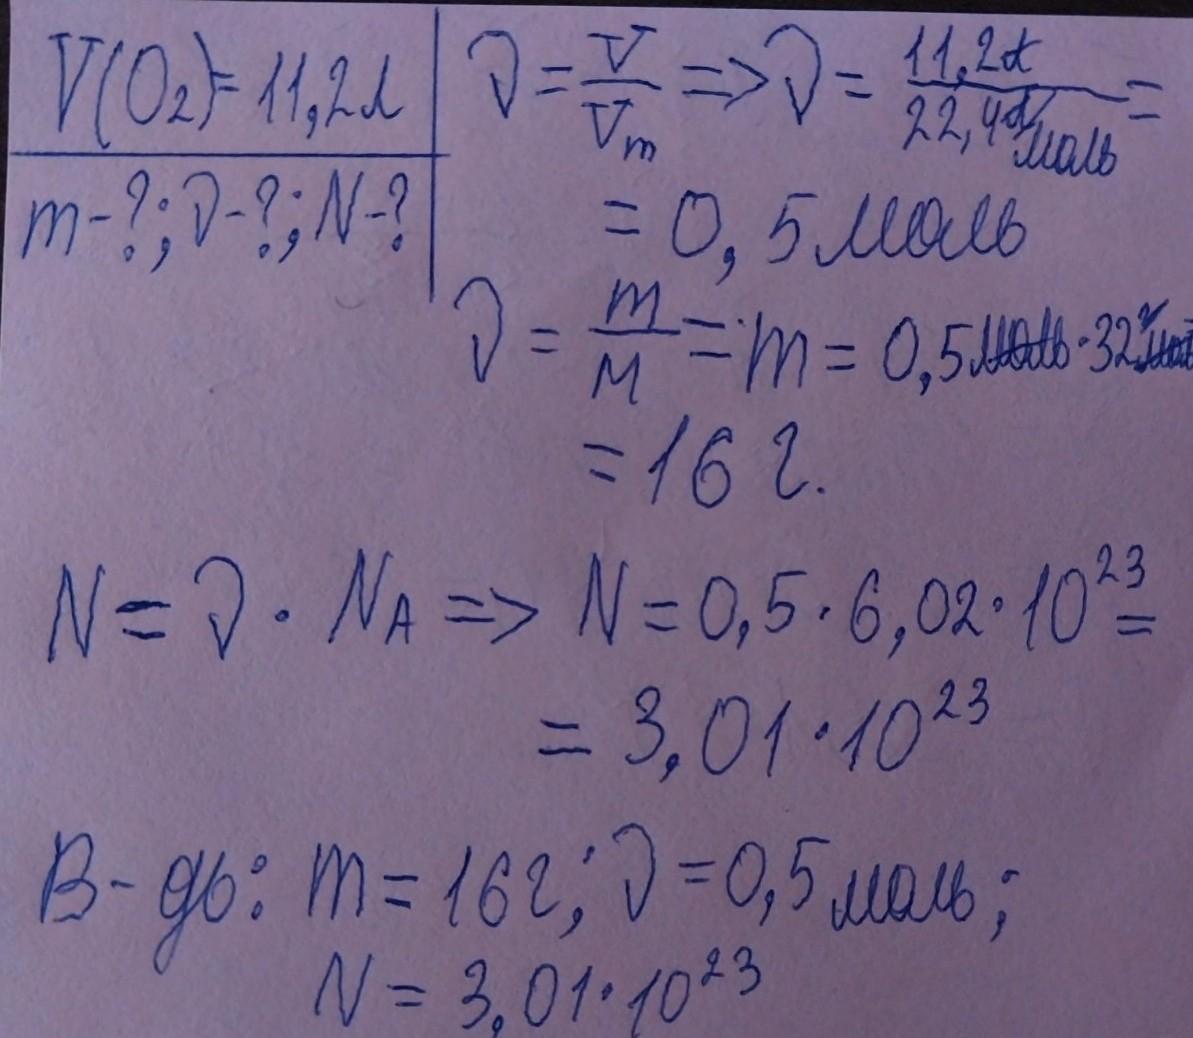 V(O₂)=11,2л
m-?; ν-?; N-?
ν = V/Vm => ν = 11,2л / 22,4л/моль =
= 0,5 моль
ν = m/M = m = 0,5моль·32г/моль
= 16 г.
N = ν · NA => N = 0,5·6,02·10²³ =
= 3,01·10²³
В-дь: m = 16г; ν = 0,5 моль;
N = 3,01·10²³